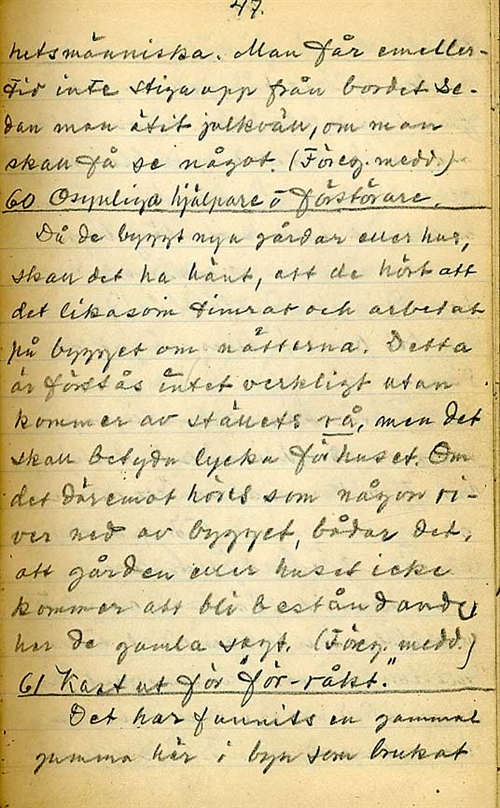 47.
hetsmänniska. Man får emeller-
tid inte stiga upp från bordet se-
dan man ätit julkväll, om man
skall få se något. (Föreg. medd.)
60 Osynliga hjälpare o förstörare.
Då de byggt nya gårdar eller hus,
skall det ha hänt, att de hört att
det likasom timrat och arbetat
på bygget om nätterna. Detta
är förstås intet verkligt utan
kommer av ställets rå, men det
skall betyda lycka för huset. Om
det däremot hörts som någon ri-
ver ned av bygget, bådar det,
att gården eller huset icke
kommer att bli beståndande
har de gamla sagt. (Föreg. medd.)
61 Kast ut för "för-råkt."
Det har funnits en gammal
gumma här i byn som brukat